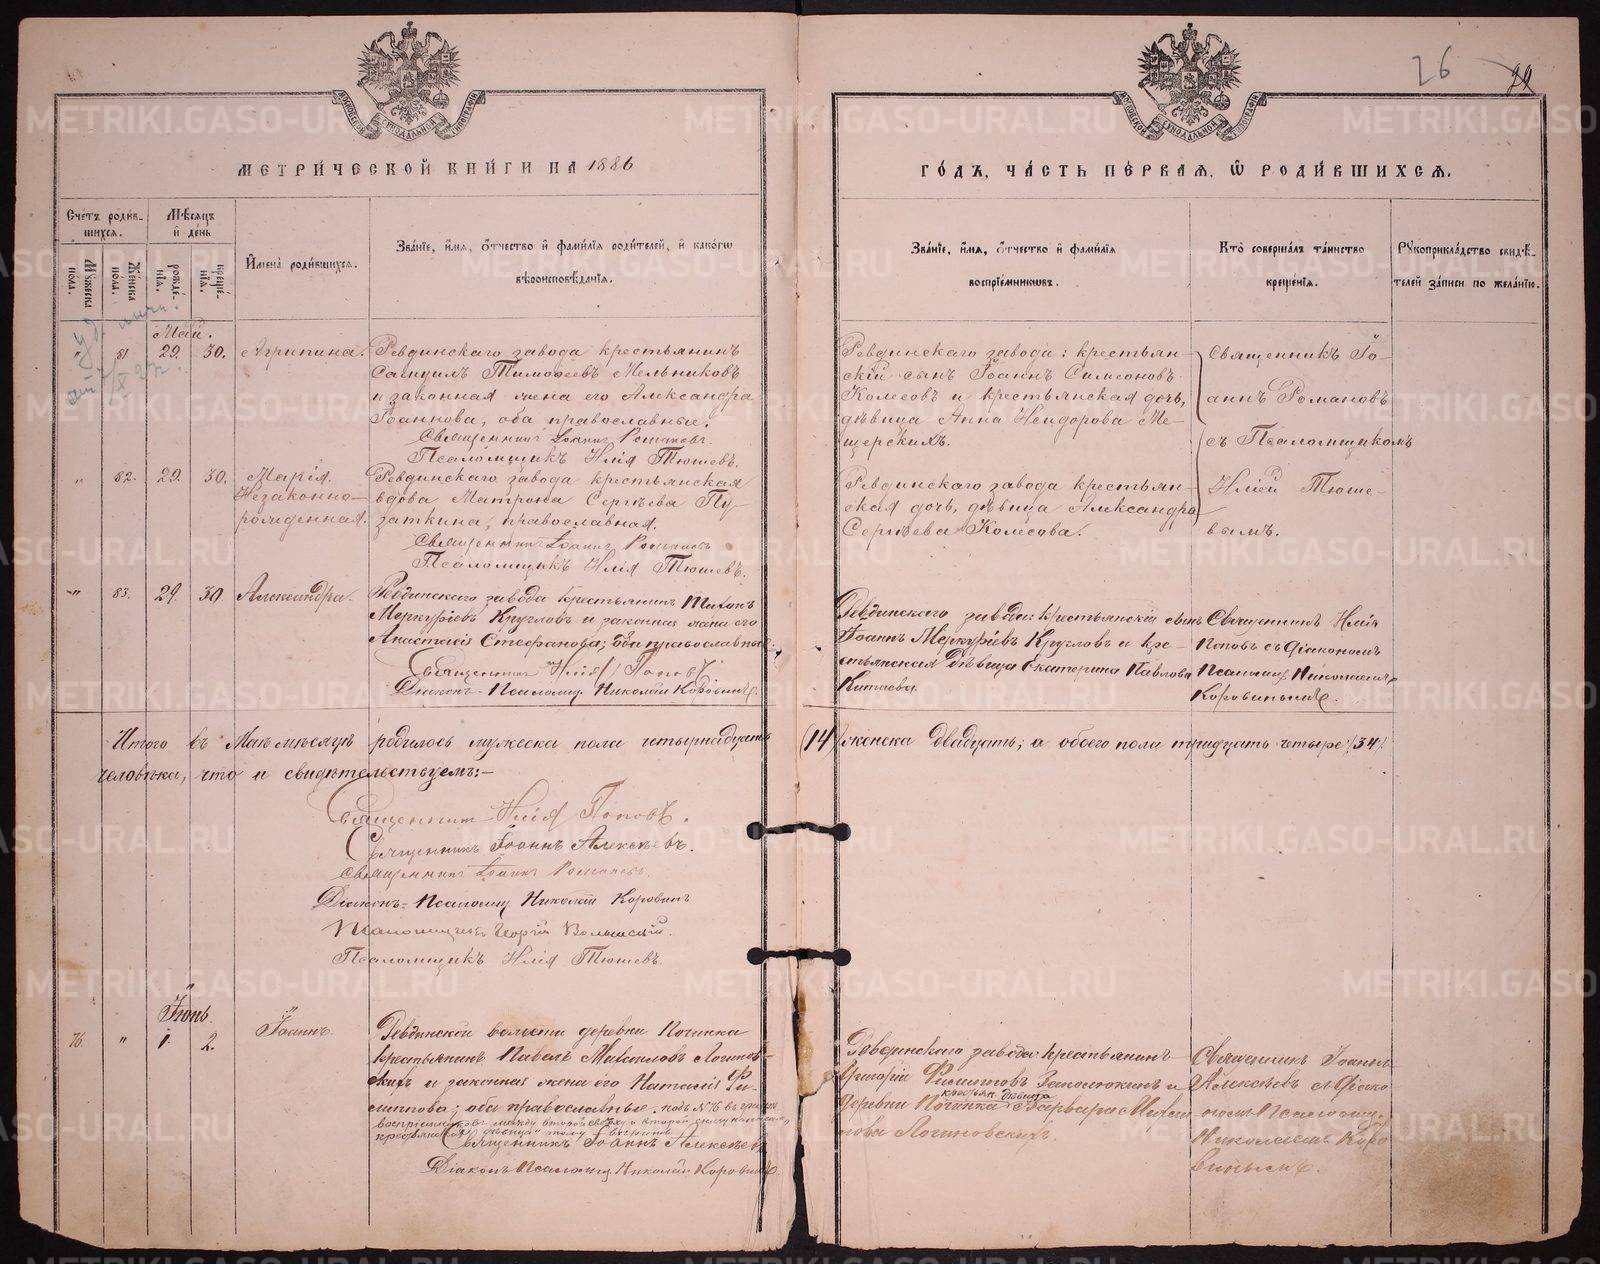 26
МОСКОВСКОЙ СѴНОДАЛЬНОЙ ТИПОГРАФІИ
МОСКОВСКОЙ СѴНОДАЛЬНОЙ ТИПОГРАФІИ
МЕТРИ́ЧЕСКОЙ КНИ́ГИ НА 1886
ГО́ДЪ, ЧА́СТЬ ПЕ́РВАЯ, Ѡ РОДИ́ВШИХСЯ.
Сче́тъ роди́в-
шихся.
Мѣсяцъ
и҆ де́нь
Мꙋжеска пола.
Же́нска по́ла.
рожде́-
нїѧ.
креще́-
нїѧ.
И҆мена̀ роди́вшихся.
Зва́нїе, и҆́мя, ѻ҆́тчество и҆ фами́лїѧ роди́телей, и҆ како́гѡ
вѣроисповѣ́данїѧ.
Зва́нїе, и҆́мя, ѻ҆́тчество и҆ фами́лїѧ
воспрїе́мникѡвъ.
Кто̀ соверша́лъ та́инство
креще́нїѧ.
Рꙋкоприкла́дство свидѣ́-
телей за́писи по жела́нїю.
Май.
" 81. 29. 30. Агрипина.
Ревдинскаго завода крестьянинъ
Тимоѳеевъ Мельниковъ
и законная жена его Александра
Іоаннова, оба православные.
Священникъ Іоаннъ Романовъ.
Псаломщикъ Илія Тюшевъ.
Ревдинскаго завода: крестьян-
скій сынъ Іоаннъ Симеоновъ
Колесовъ и крестьянская дочь,
дѣвица Анна Ме-
щерскихъ.
Священникъ Іо-
аннъ Романовъ
съ Псаломщикомъ
Иліей Тюше-
вымъ.
" 82. 29. 30. Марія.
Незаконно-
рожденная.
Ревдинскаго завода крестьянская
вдова Матрона Сергѣева Пу-
заткина, православная.
Священникъ Іоаннъ Романовъ
Псаломщикъ Илія Тюшевъ.
Ревдинскаго завода крестьян-
ская дочь, дѣвица Александра
Сергѣева Колесова.
" 83. 29. 30. Александра.
Ревдинскаго завода крестьянинъ Тихонъ
Меркуріевъ Кругловъ и законная жена его
Анастасія Стефанова; оба православные.
Священникъ Илія Поповъ
Діаконъ-Псаломщ. Николай Коровинъ.
Ревдинскаго завода: крестьянскій сынъ
Іоаннъ Меркуріевъ Кругловъ и кре-
стьянская дѣвица Екатерина Павлова
Китаева.
Священникъ Илія
Поповъ съ Діакономъ
Псаломщ. Николаемъ
Коровинымъ.
Итого въ Маѣ мѣсяцѣ родилось мужеска пола четырнадцать (14) женска двадцать; а обоего пола тридцать четыре (34)
человѣка, что и свидѣтельствуемъ:-
Священникъ Илія Поповъ.
Священникъ Іоаннъ Алексѣевъ.
Священникъ Іоаннъ Романовъ.
Діаконъ-Псаломщ. Николай Коровинъ
Псаломщикъ Георгій
Псаломщикъ Илія Тюшевъ.
Іюнь.
76. " 1. 2. Іоаннъ.
Ревдинской волости деревни Починка
крестьянинъ Павелъ Михаиловъ Логинов-
скихъ и законная жена его Наталія Фи-
липпова; оба православные. подъ №76 въ графѣ
воспріемниковъ между второй сверху и второй снизу
крестьян. дѣвица тому вѣрить
Священникъ Іоаннъ Алексѣевъ
Діаконъ-Псаломщ. Николай Коровинъ.
Ревдинскаго завода крестьянинъ
Григорій Филипповъ и
крестьян. дѣвица
деревни Починка Варвара Михаи-
лова Логиновскихъ.
Священникъ Іоаннъ
Алексѣевъ съ Діако-
номъ-Псаломщ.
Николаемъ Коро-
винымъ.
METRIKI.GASO-URAL.RU